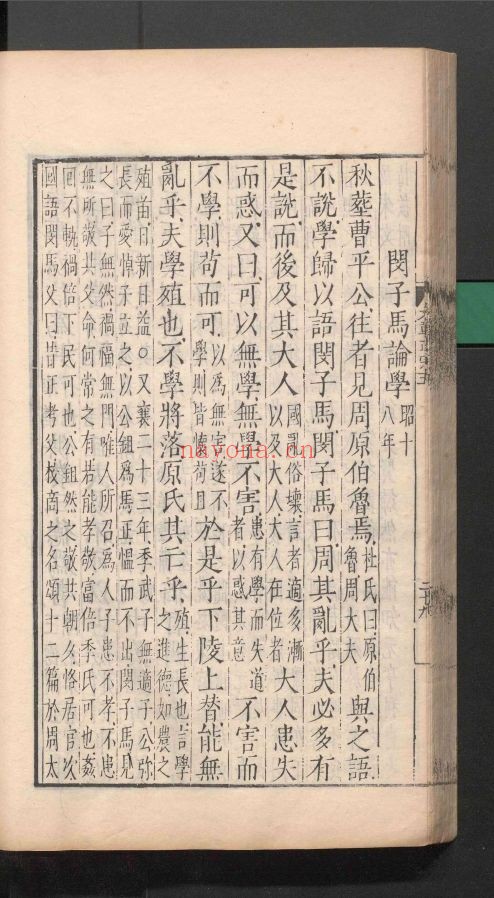 閔子馬論學昭十八年
秋葬曹平公往者見周原伯魯焉杜氏曰原伯魯周大夫與之語
不說學歸以語閔子馬閔子馬曰周其亂乎夫必多有
是說而後及其大人國亂俗壞言者適多漸以及大人大人在位者大人患失
而惑又曰可以無學無學不害患有學而失道者以惑其意不害而
不學則苟而可以為無害遂不學則皆懷苟且於是乎下陵上替能無
亂乎夫學殖也不學將落原氏其亡乎殖生長也言學之進德如農之
殖苗日新日益○又襄二十三年季武子無適子公彌
長而愛悼子立之以公鉏為馬正慍而不出閔子馬見
之曰子無然禍福無門唯人所召為人子患不孝不患
無所敬共父命何常之有若能孝敬富倍季氏可也姦
回不軌禍倍下民可也公鉏然之敬共朝夕恪居官次
國語閔馬父曰昔正考父校商之名頌十二篇於周太
navona.cn